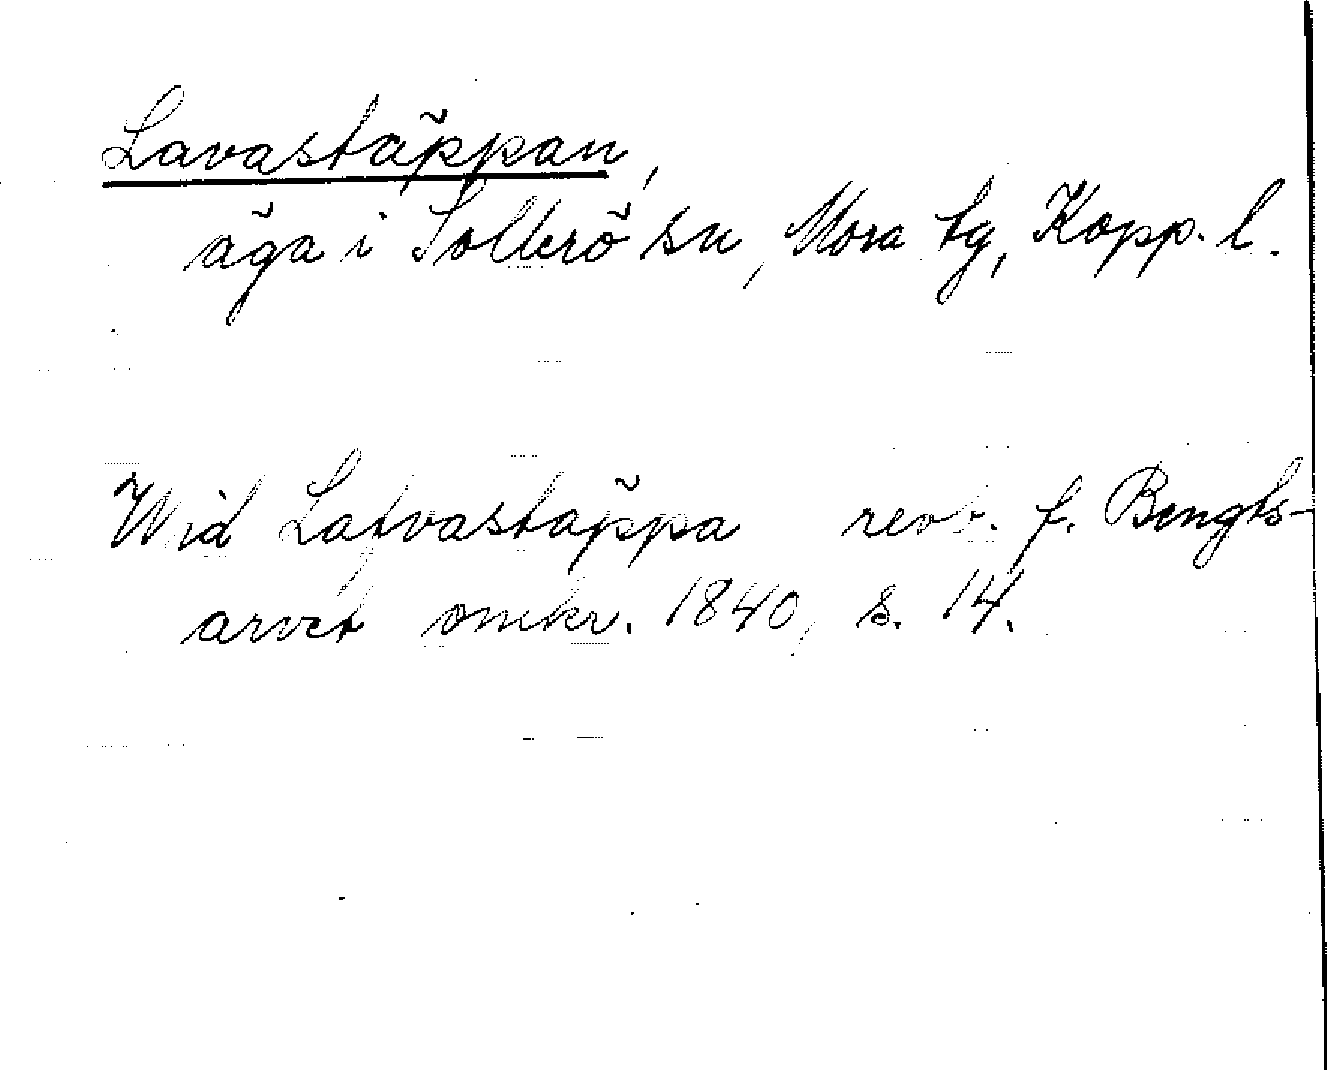 Lavastäppan,
äga i Sollerö sn, Mora tg, Kopp. l.
Wid Lafvastäppa revb. f. Bengts-
arvet omkr. 1840, s. 14.